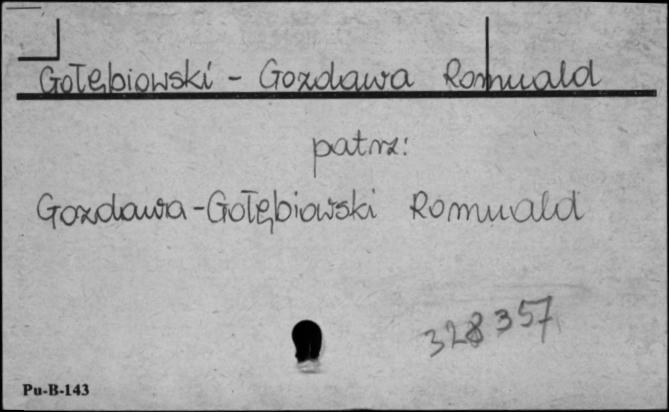 Gołębiowski - Gozdawa Romuald
patrz:
Gozdawa-Gołębiowski Romuald
328357
Pu-B-143